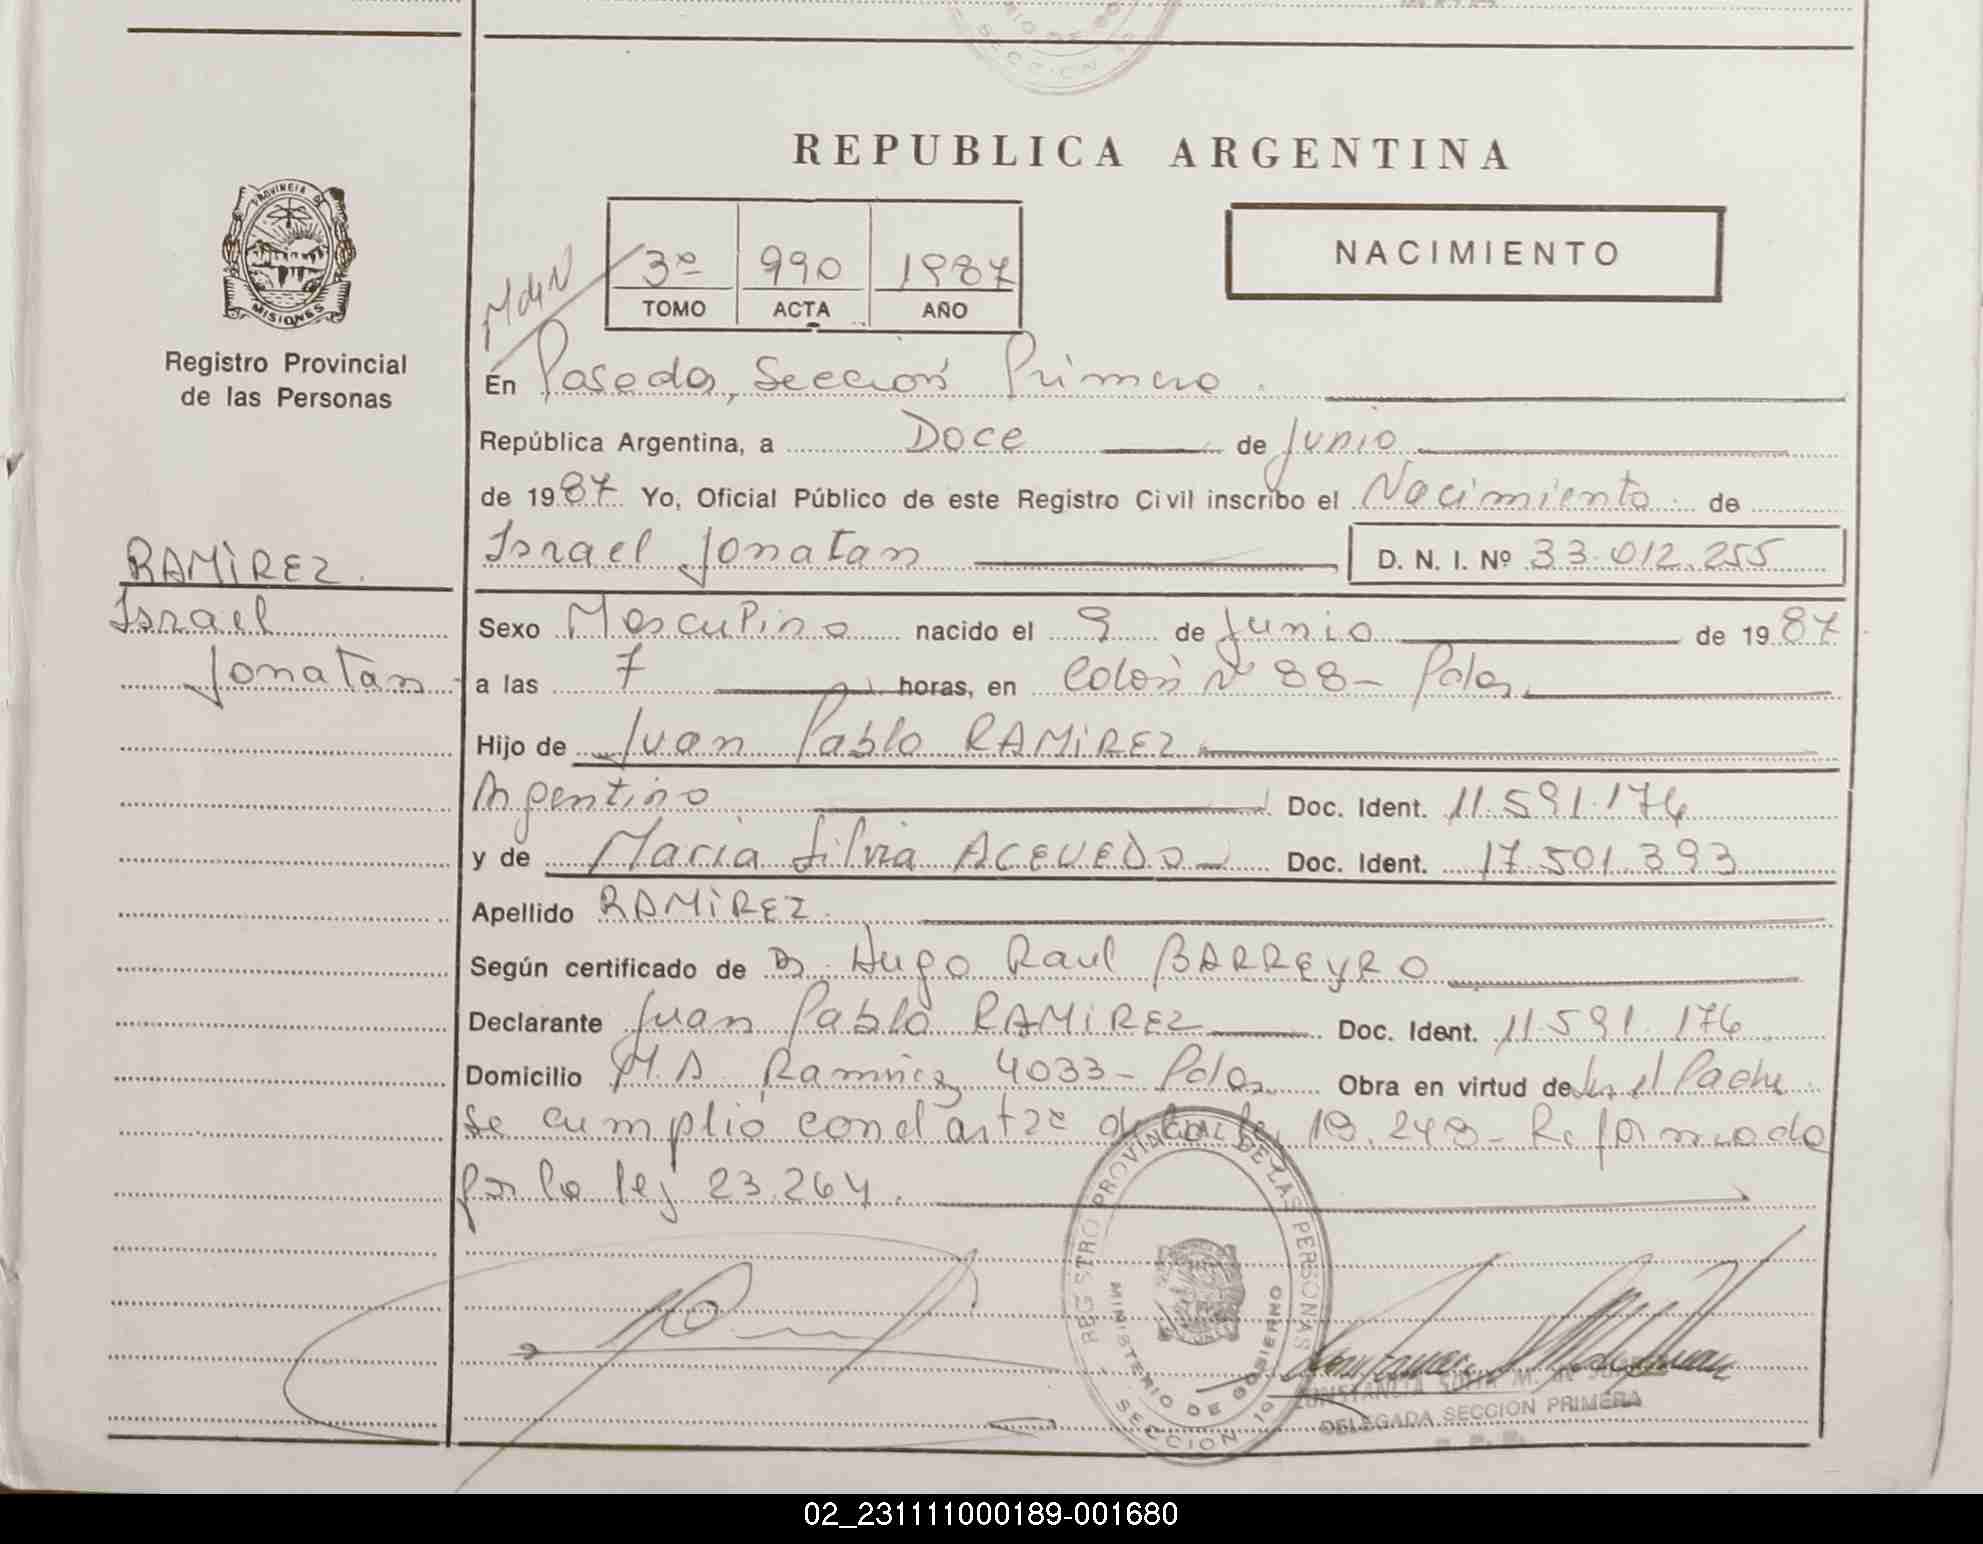 REPUBLICA ARGENTINA
PROVINCIA DE
MISIONES
Registro Provincial
de las Personas
3º 990 1987
TOMO ACTA AÑO
NACIMIENTO
En Posadas, Sección Primera.
República Argentina, a Doce de Junio
de 1987 Yo, Oficial Público de este Registro Civil inscribo el Nacimiento de
Israel Jonatan D. N. I. Nº 33.012.255
RAMIREZ.
Israel
Jonatan
Sexo Masculino nacido el 9 de Junio de 1987
a las 7 horas, en Colón Nº 88 - Pdas.
Hijo de Juan Pablo RAMIREZ
Argentino Doc. Ident. 11.591.176
y de Maria Silvia ACEVEDO Doc. Ident. 17.501.393
Apellido RAMIREZ.
Según certificado de Dr. Hugo Raul BARREYRO
Declarante Juan Pablo RAMIREZ Doc. Ident. 11.591.176
Domicilio M. A. Ramirez 4033 - Pdas. Obra en virtud de Ser el Padre.
Se cumplió con el art 2º de la ley 19.249 - Reformada
por la ley 23.264.
REGISTRO PROVINCIAL DE LAS PERSONAS
MINISTERIO DE GOBIERNO
SECCION 1ª
DELEGADA SECCION PRIMERA
02_231111000189-001680